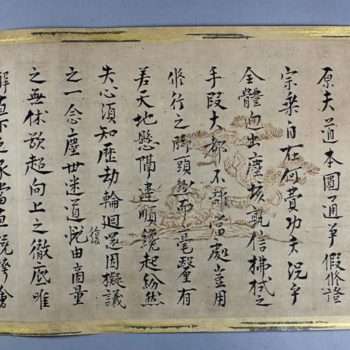 原夫道本圓通爭假修證
宗乘自在何費功夫況乎
全體迥出塵垓孰信拂拭之
手段大都不離當處豈用
修行之脚頭歟而毫釐有
差天地懸隔違順纔起紛然
失心須知歷劫輪迴還因擬議
之一念塵世迷道由商量
復
之無休欲超向上之徹底唯
解直下之承當直饒誇會